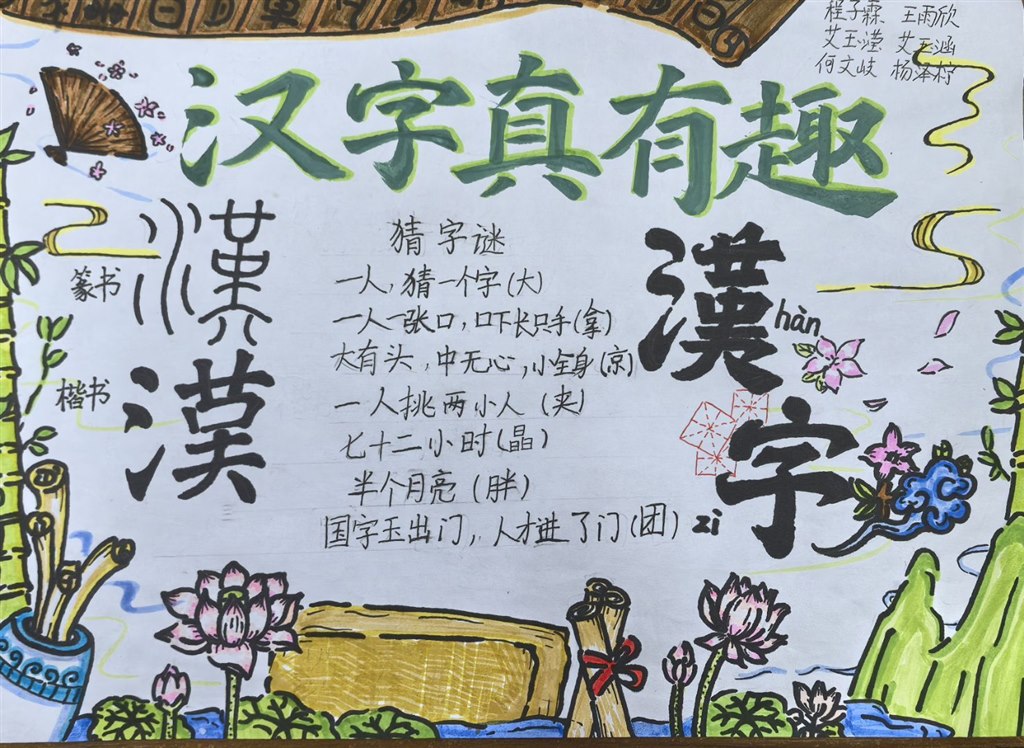 程子霖 王雨欣
艾玉滢 艾玉涵
何文岐 杨泽柠
汉字真有趣
篆书
漢
楷书
漢
猜字谜
一人，猜一个字(大)
一人一张口，口下长只手(拿)
大有头，中无心，小全身(京)
一人挑两小人(夹)
七十二小时(晶)
半个月亮(胖)
国字玉出门，人才进了门(团)
漢
hàn
字
zì